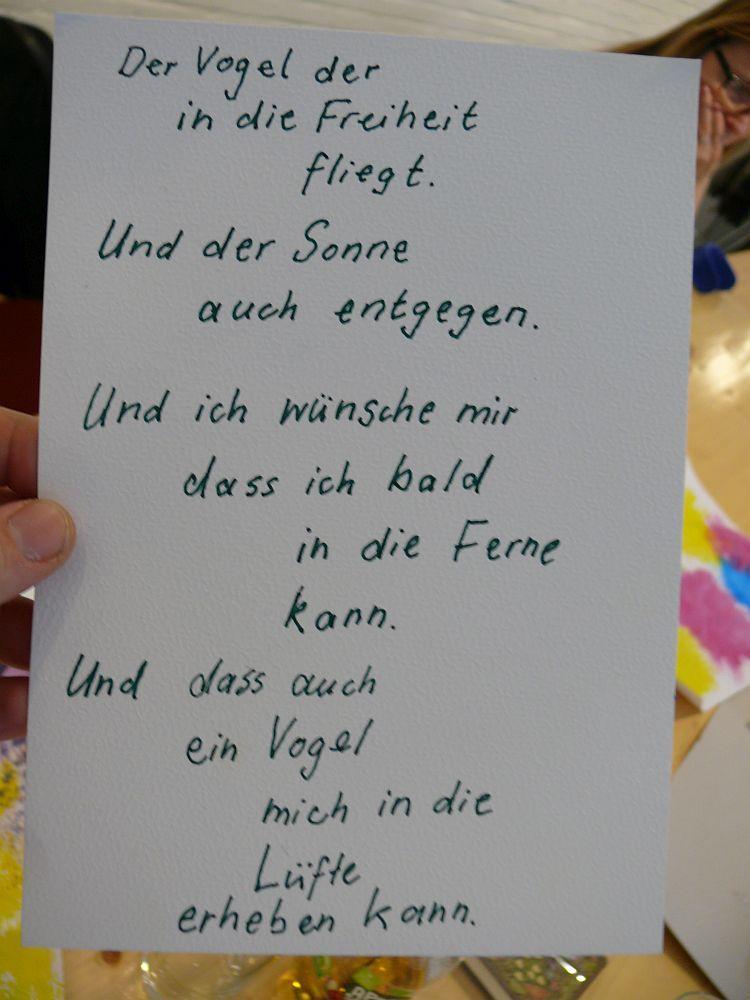 Der Vogel der
in die Freiheit
fliegt.
Und der Sonne
auch entgegen.
Und ich wünsche mir
dass ich bald
in die Ferne
kann.
Und dass auch
ein Vogel
mich in die
Lüfte
erheben kann.